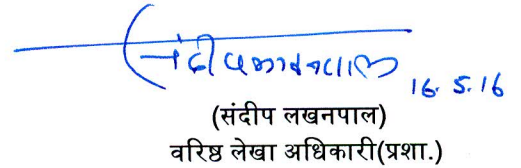 संदीप लखनपाल
16.5.16
(संदीप लखनपाल)
वरिष्ठ लेखा अधिकारी(प्रशा.)